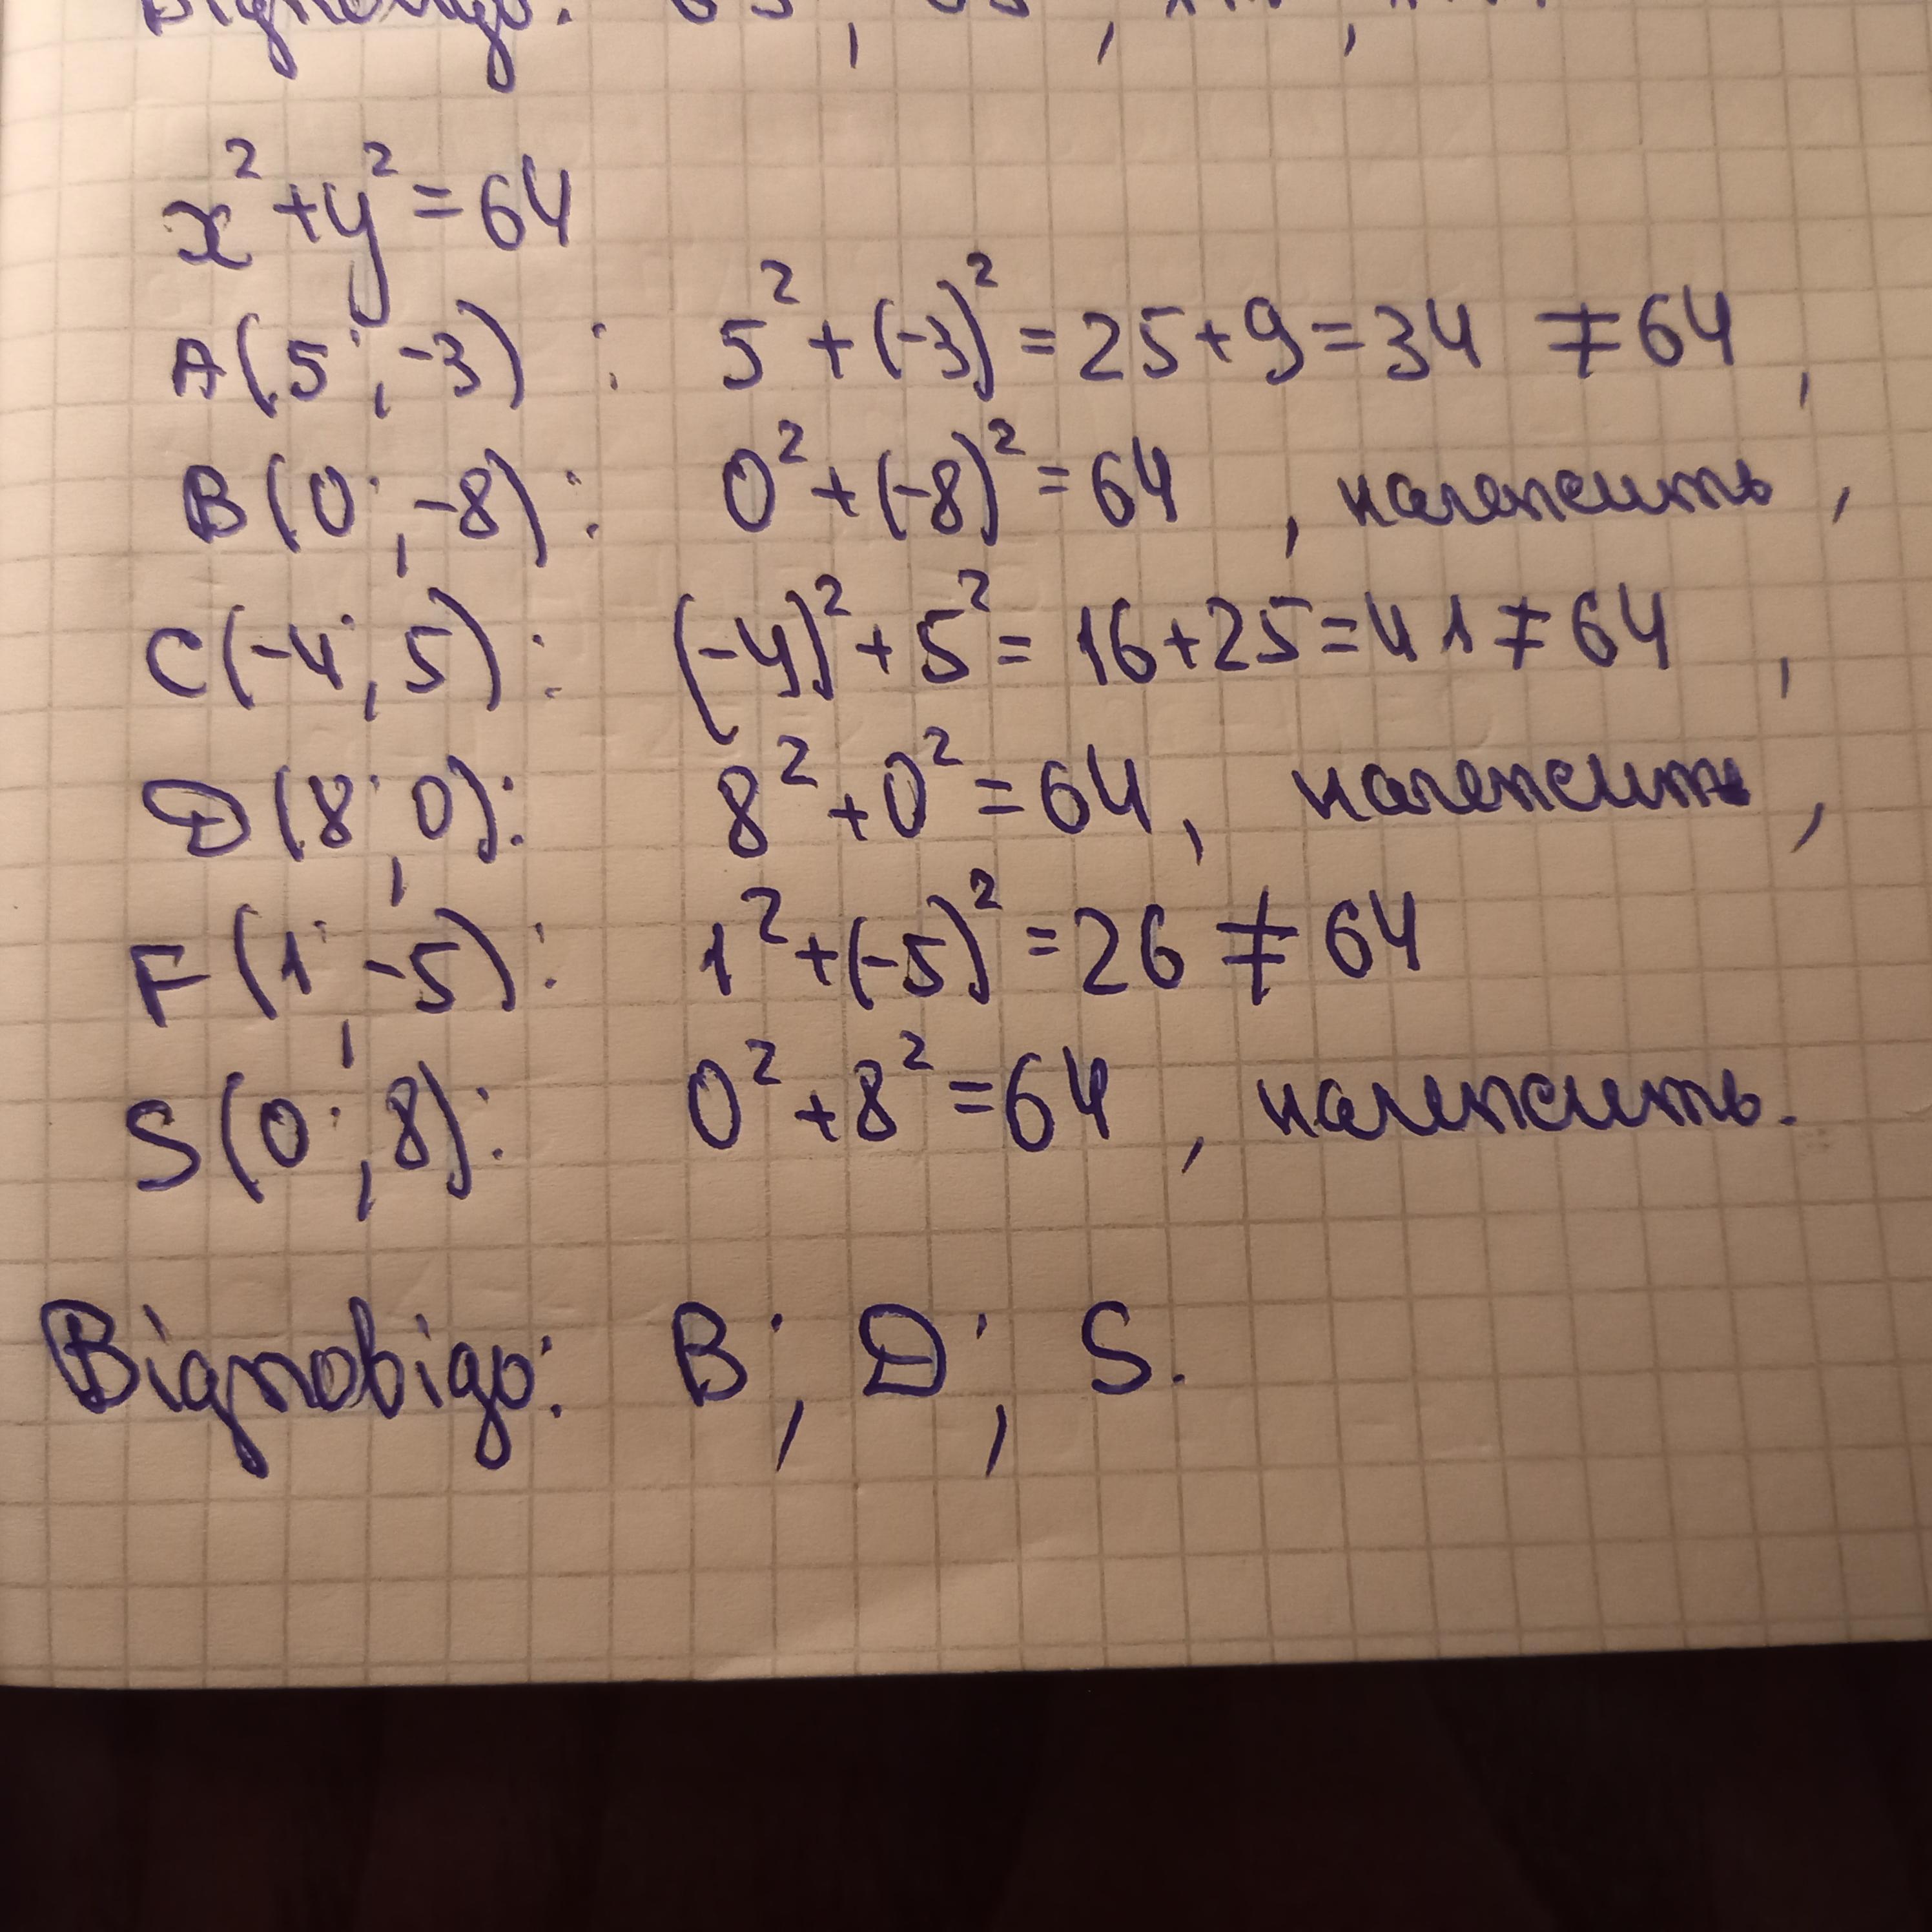 Відповідь:
x² + y² = 64
A(5; -3) : 5² + (-3)² = 25 + 9 = 34 ≠ 64,
B(0; -8) : 0² + (-8)² = 64, належить,
C(-4; 5) : (-4)² + 5² = 16 + 25 = 41 ≠ 64,
D(8; 0) : 8² + 0² = 64, належить,
F(1; -5) : 1² + (-5)² = 26 ≠ 64
S(0; 8) : 0² + 8² = 64, належить.
Відповідь: B; D; S.